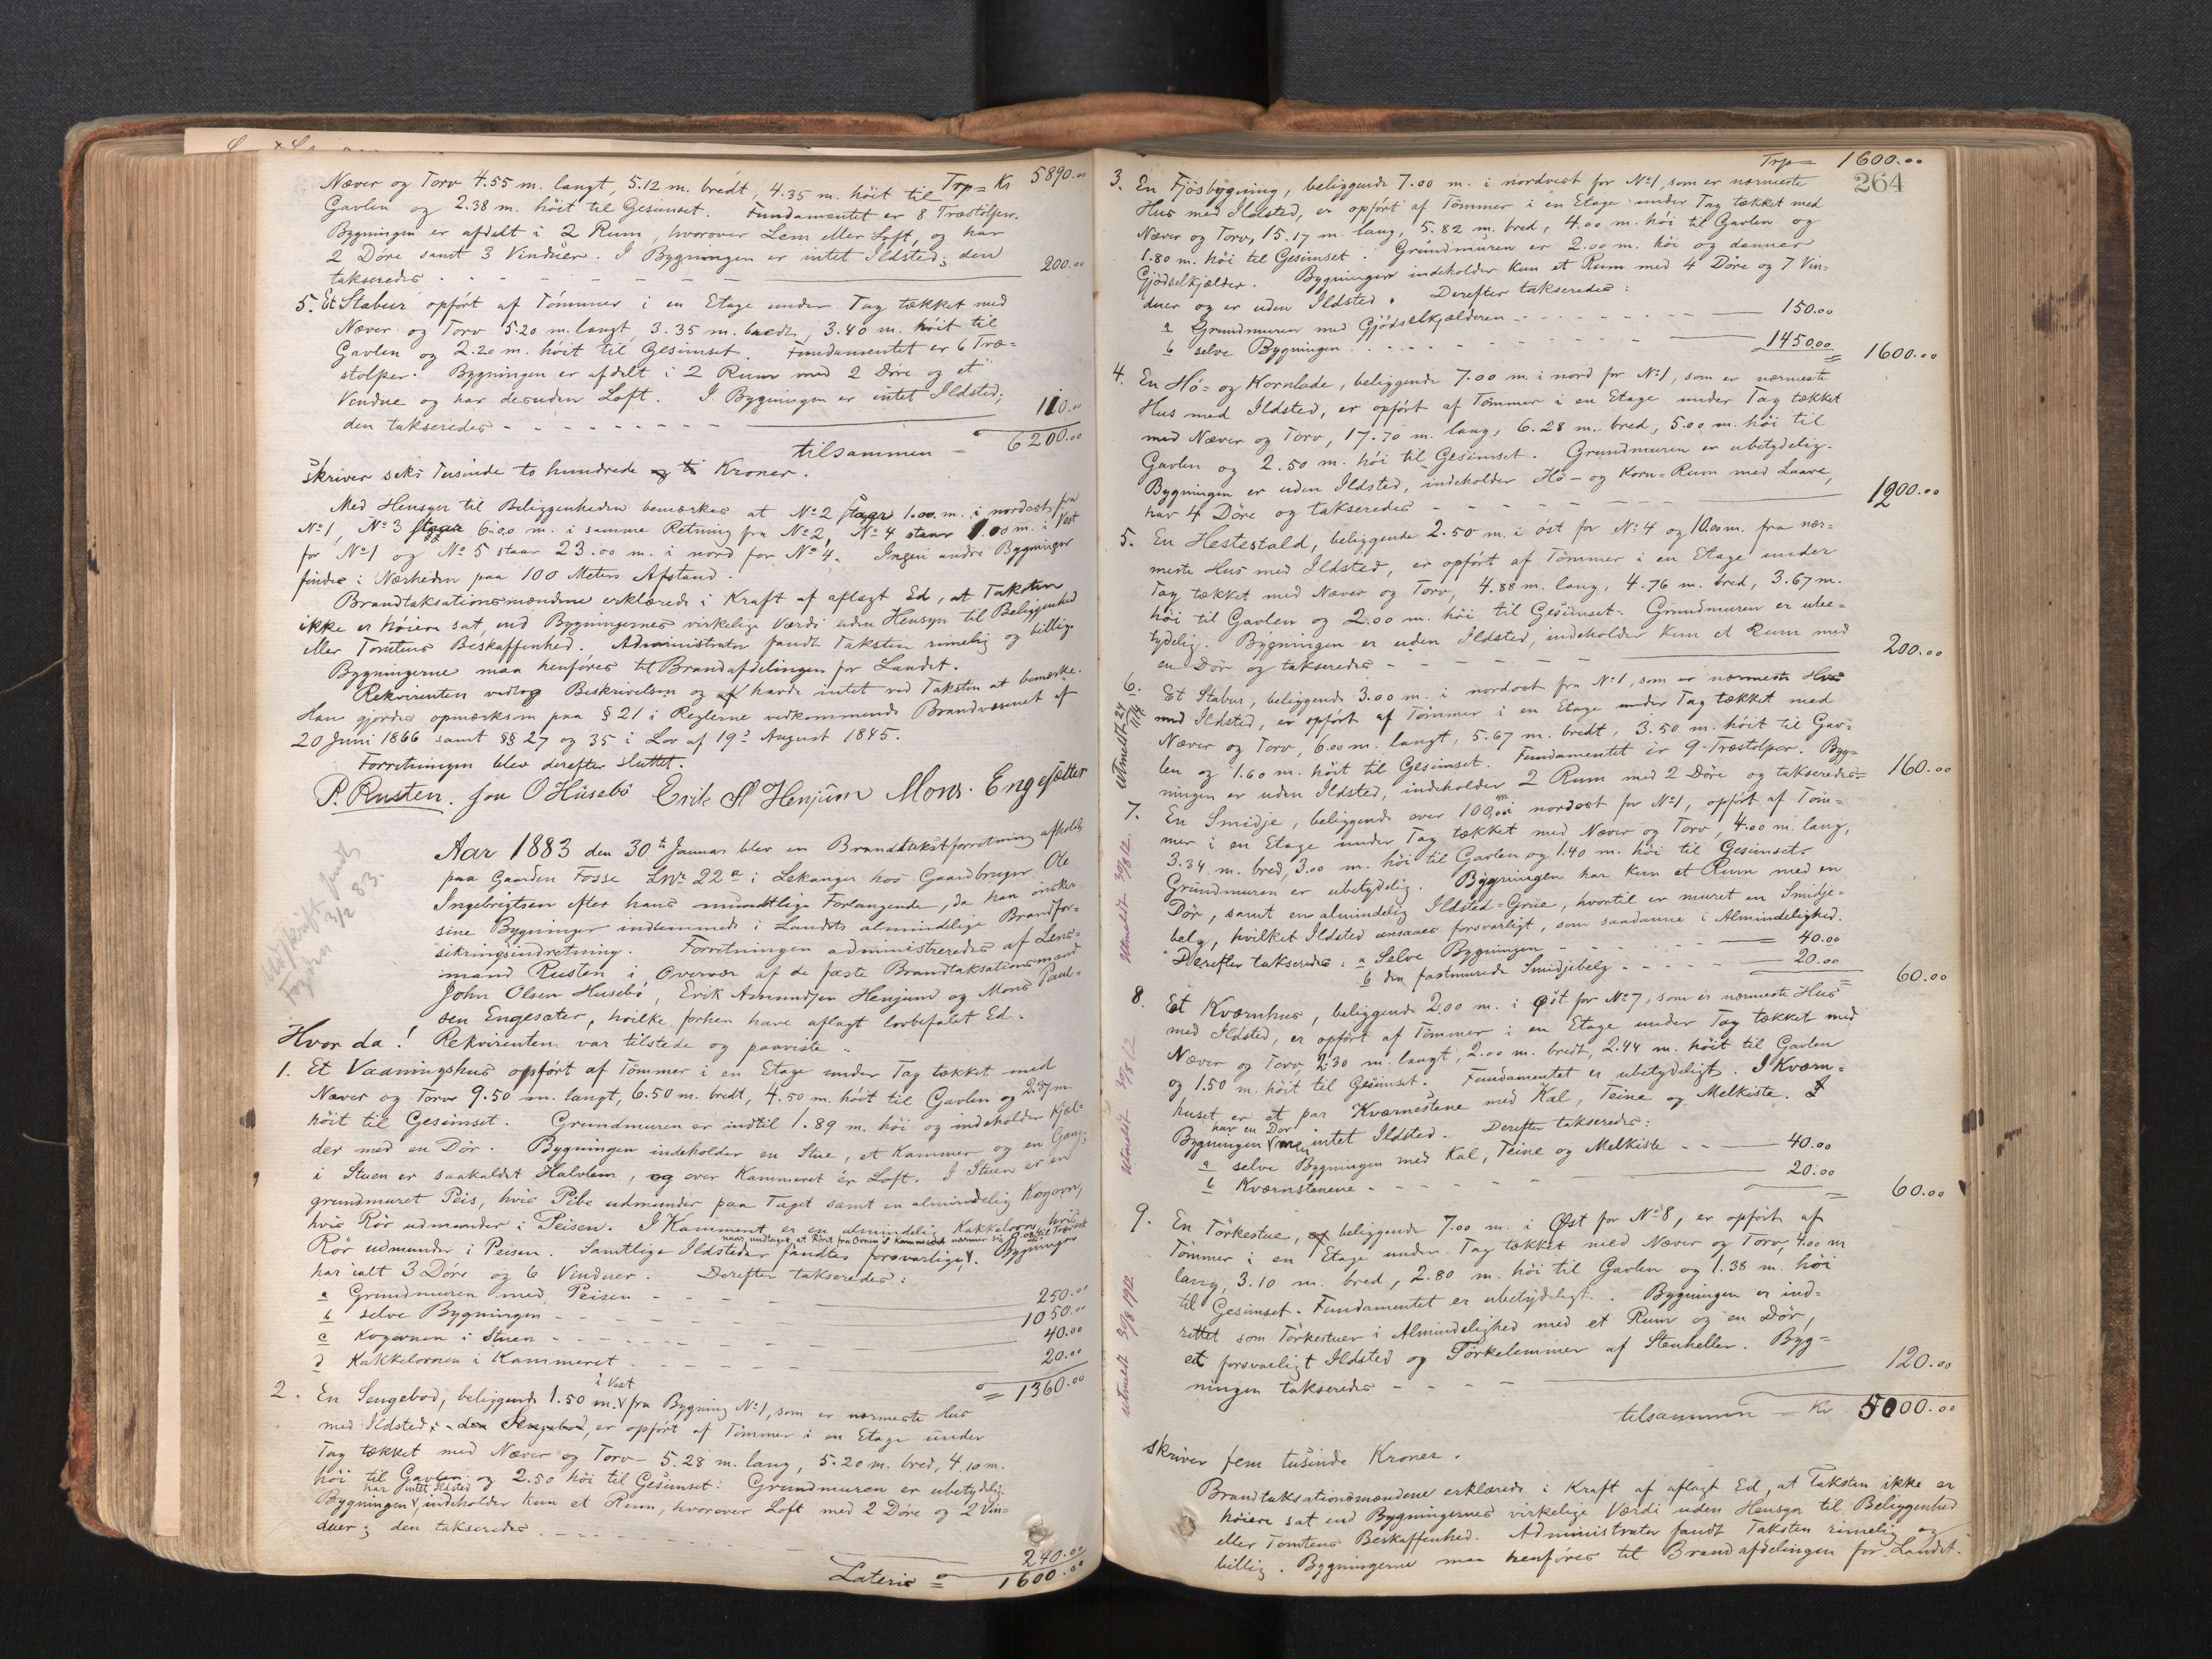 Trp = Kr 5890.00
Næver og Torv 4.55 m. langt, 5.12 m. bredt, 4.35 m. höit til
Gavlen og 2.38 m. höit til Gesimset. Fundamentet er 8 Træstolper.
Bygningen er afdelt i 2 Rum, hvorover Lem eller Loft, og har
2 Döre samt 3 Vinduer. I Bygningen er intet Ildsted; den
takseredes - - - - 200.00
5. Et Stabur opfört af Tömmer i en Etage under Tag tækket med
Næver og Torv 5.20 m. langt, 3.35 m. bredt, 3.40 m. höit til
Gavlen og 2.20 m. höit til Gesimset. Fundamentet er 6 Træ=
stolper. Bygningen er afdelt i 2 Rum med 2 Döre og et
Vindue og har desuden Loft. I Bygningen er intet Ildsted;
den takseredes - - - - 110.00
tilsammen = 6200.00
skriver seks Tusinde to hundrede og ti Kroner.
Med Hensyn til Beliggenheden bemærkes at No 2 staar 1.00 m. i nordost fra
No 1, No 3 staar 6.00 m. i samme Retning fra No 2, No 4 staar 1.00 m. i Vest
for No 1 og No 5 staar 23.00 m. i nord for No 4. Ingen andre Bygninger
findes i Nærheden paa 100 Meters Afstand.
Brandtaksationsmændene erklærede i Kraft af aflagt Ed, at Taksten
ikke er höiere sat, end Bygningernes virkelige Værdi uden Hensyn til Beliggenhed
eller Tomtens Beskaffenhed. Administrator fandt Taksten rimelig og billig.
Bygningerne maa henföres til Brandafdelingen for Landet.
Rekvirenten vedtog Beskrivelsen og af havde intet ved Taksten at bemærke.
Han gjordes opmærksom paa § 21 i Reglerne vedkommende Brandvæsenet af
20 Juni 1866 samt §§ 27 og 35 i Lov af 19de August 1845.
Forretningen blev derefter sluttet.
P. Rusten. Jon O Husebö Erik A Henjum Mons. Engesætter
Udskrift sendt
Fogden 3/2 83.
Aar 1883 den 30te Januar blev en Brandtakstforretning afholdt
paa Gaarden Fosse LNr 22a i Lekanger hos Gaardbruger Ole
Ingebrigtsen efter hans mundtlige Forlangende, da han önsker
sine Bygninger indlemmede i Landets almindelige Brandfor=
sikringsindretning. Forretningen administreredes af Lens=
mand Rusten i Overvær af de faste Brandtaksationsmænd
John Olsen Husebö, Erik Amundsen Henjum og Mons Paul=
sen Engesæter, hvilke forhen have aflagt lovbefalet Ed.
Hvor da! Rekvirenten var tilstede og paaviste:
1. Et Vaaningshus opfört af Tömmer i en Etage under Tag tækket med
Næver og Torv 9.50 m. langt, 6.50 m. bredt, 4.50 m. höit til Gavlen og 2.37 m.
höit til Gesimset. Grundmuren er indtil 1.89 m. höi og indeholder Kjæl=
der med en Dör. Bygningen indeholder en Stue, et Kammer og en Gang;
i Stuen er saakaldet Halvlem, og over Kammeret er Loft. I Stuen er en
grundmuret Peis, hvis Pibe udmunder paa Taget samt en almindelig Kogovn,
hvis Rör udmunder i Peisen. I Kammeret er en almindelig Kakkelovn, hvis
naar undtages, at Röret fra Ovnen i Kammeret nærmer sig til Træværk
Rör udmunder i Peisen. Samtlige Ildsteder fandtes forsvarlige. Bygningen
har ialt 3 Döre og 6 Vinduer. Derefter takseredes:
a Grundmuren med Peisen - - - 250.00
b selve Bygningen - - - 1050.00
c Kogovnen i Stuen - - - 40.00
d Kakkelovnen i Kammeret - - - 20.00
= 1360.00
i Vest
2. En Sengebod, beliggende 1.50 m. fra Bygning No 1, som er nærmeste Hus
med Ildsted; den Sengebod er opfört af Tömmer i en Etage under
Tag tækket med Næver og Torv - 5.28 m. lang, 5.20 m. bred, 4.10 m.
höi til Gavlen og 2.50 höi til Gesimset: Grundmuren er ubetydelig.
har intet Ildsted
Bygningen, indeholder kun et Rum, hvorover Loft med 2 Döre og 2 Vin=
duer; den takseredes - - - 240.00
Lateris = 1600.00
Trp = 1600.00
264
3. En Fjösbygning, beliggende 7.00 m. i nordvest for No 1, som er nærmeste
Hus med Ildsted, er opfört af Tömmer i en Etage under Tag tækket med
Næver og Torv, 15.17 m. lang, 5.82 m. bred, 4.00 m. höi til Gavlen og
1.80 m. höi til Gesimset. Grundmuren er 2.00 m. höi og danner
Gjödselkjælder. Bygningen indeholder kun et Rum med 4 Döre og 7 Vin=
duer og er uden Ildsted. Derefter takseredes:
a Grundmuren med Gjödselkjælderen - - - 150.00
b selve Bygningen - - - 1450.00 = 1600.00
4. En Hö= og Kornlade, beliggende 7.00 m. i nord for No 1, som er nærmeste
Hus med Ildsted, er opfört af Tömmer i en Etage under Tag tækket
med Næver og Torv, 17.70 m. lang, 6.28 m. bred, 5.00 m. höi til
Gavlen og 2.50 m. höi til Gesimset. Grundmuren er ubetydelig.
Bygningen er uden Ildsted, indeholder Hö- og Korn=Rum med Laave,
har 4 Döre og takseredes - - - 1200.00
5. En Hestestald, beliggende 2.50 m. i öst for No 4 og 10.00 m. fra nær=
meste Hus med Ildsted, er opfört af Tömmer i en Etage under
Tag tækket med Næver og Torv, 4.88 m. lang, 4.76 m. bred, 3.67 m.
höi til Gavlen og 2.00 m. höi til Gesimset. Grundmuren er ube=
tydelig. Bygningen er uden Ildsted, indeholder kun et Rum med
en Dör og takseredes - - - 200.00
6. Et Stabur, beliggende 3.00 m. i nordost fra No 1, som er nærmeste Hus
med Ildsted, er opfört af Tömmer i en Etage under Tag tækket med
Næver og Torv, 6.00 m. langt, 5.67 m. bredt, 3.50 m. höit til Gav=
len og 1.60 m. höit til Gesimset. Fundamentet er 9 Træstolper. Byg=
ningen er uden Ildsted, indeholder 2 Rum med 2 Döre og takseredes = 160.00
7. En Smidje, beliggende over 100,00 m nordost for No 1, opfört af Töm=
mer i en Etage under Tag tækket med Næver og Torv, 4.00 m. lang,
3.34 m. bred, 3.00 m. höi til Gavlen og 1.40 m. höi til Gesimset.
Grundmuren er ubetydelig. Bygningen har kun et Rum med en
Dör, samt en almindelig Ildsted=Grue, hvortil er muret en Smidje=
belg, hvilket Ildsted ansaaes forsvarligt, som saadanne i Almindelighed.
Derefter takseredes: a Selve Bygningen - - - 40.00
b den fastmurede Smidjebelg - - - 20.00 = 60.00
8. Et Kværnhus, beliggende 2.00 m. i Öst for No 7, som er nærmeste Hus
med Ildsted, er opfört af Tömmer i en Etage under Tag tækket med
Næver og Torv 2.30 m. langt, 2.00 m. bredt, 2.44 m. höit til Gavlen
og 1.50 m. höit til Gesimset. Fundamentet er ubetydeligt. I Kværn=
huset er et par Kværnestene med Kal, Teine og Melkiste. I
har en Dör
Bygningen men intet Ildsted. Derefter takseredes:
a selve Bygningen med Kal, Teine og Melkiste - - 40.00
b Kværnstenene - - - 20.00 = 60.00
9. En Törkestue, beliggende 7.00 m. i Öst for No 8, er opfört af
Tömmer i en Etage under Tag tækket med Næver og Torv, 4.00 m
lang, 3.10 m. bred, 2.80 m. höi til Gavlen og 1.38 m. höi
til Gesimset. Fundamentet er ubetydeligt. Bygningen er ind=
rettet som Törkestuer i Almindelighed med et Rum og en Dör,
et forsvarligt Ildsted og Törkelemmer af Stenheller. Byg=
ningen takseredes - - - 120.00
tilsammen = Kr 5000.00
skriver fem tusinde Kroner.
Brandtaksationsmændene erklærede i Kraft af aflagt Ed, at Taksten ikke er
höiere sat end Bygningernes virkelige Værdi uden Hensyn til Beliggenhed
eller Tomtens Beskaffenhed. Administrator fandt Taksten rimelig og
billig. Bygningerne maa henföres til Brandafdelingen for Landet.
Utmeldt 30/8 12.
Utmeldt 30/8 12
utmeldt 30/8 1912